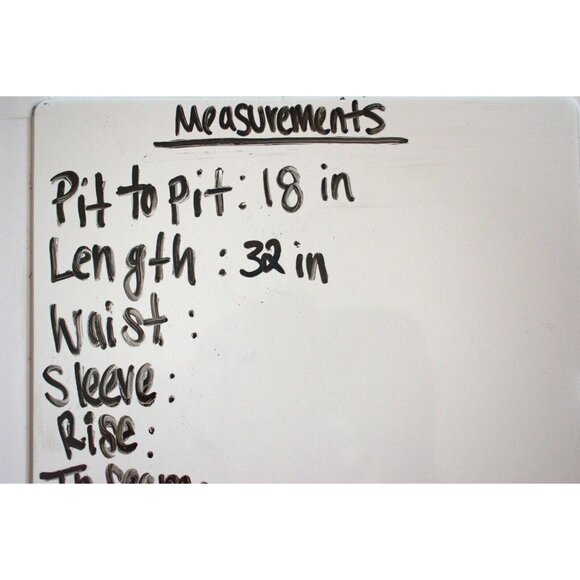 Measurements
Pit to pit: 18 in
Length: 32 in
Waist:
Sleeve:
Rise:
Inseam: